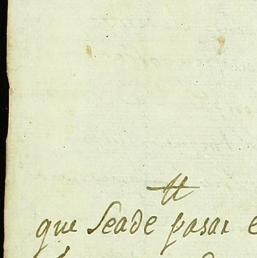 tt
que Seade pasar e